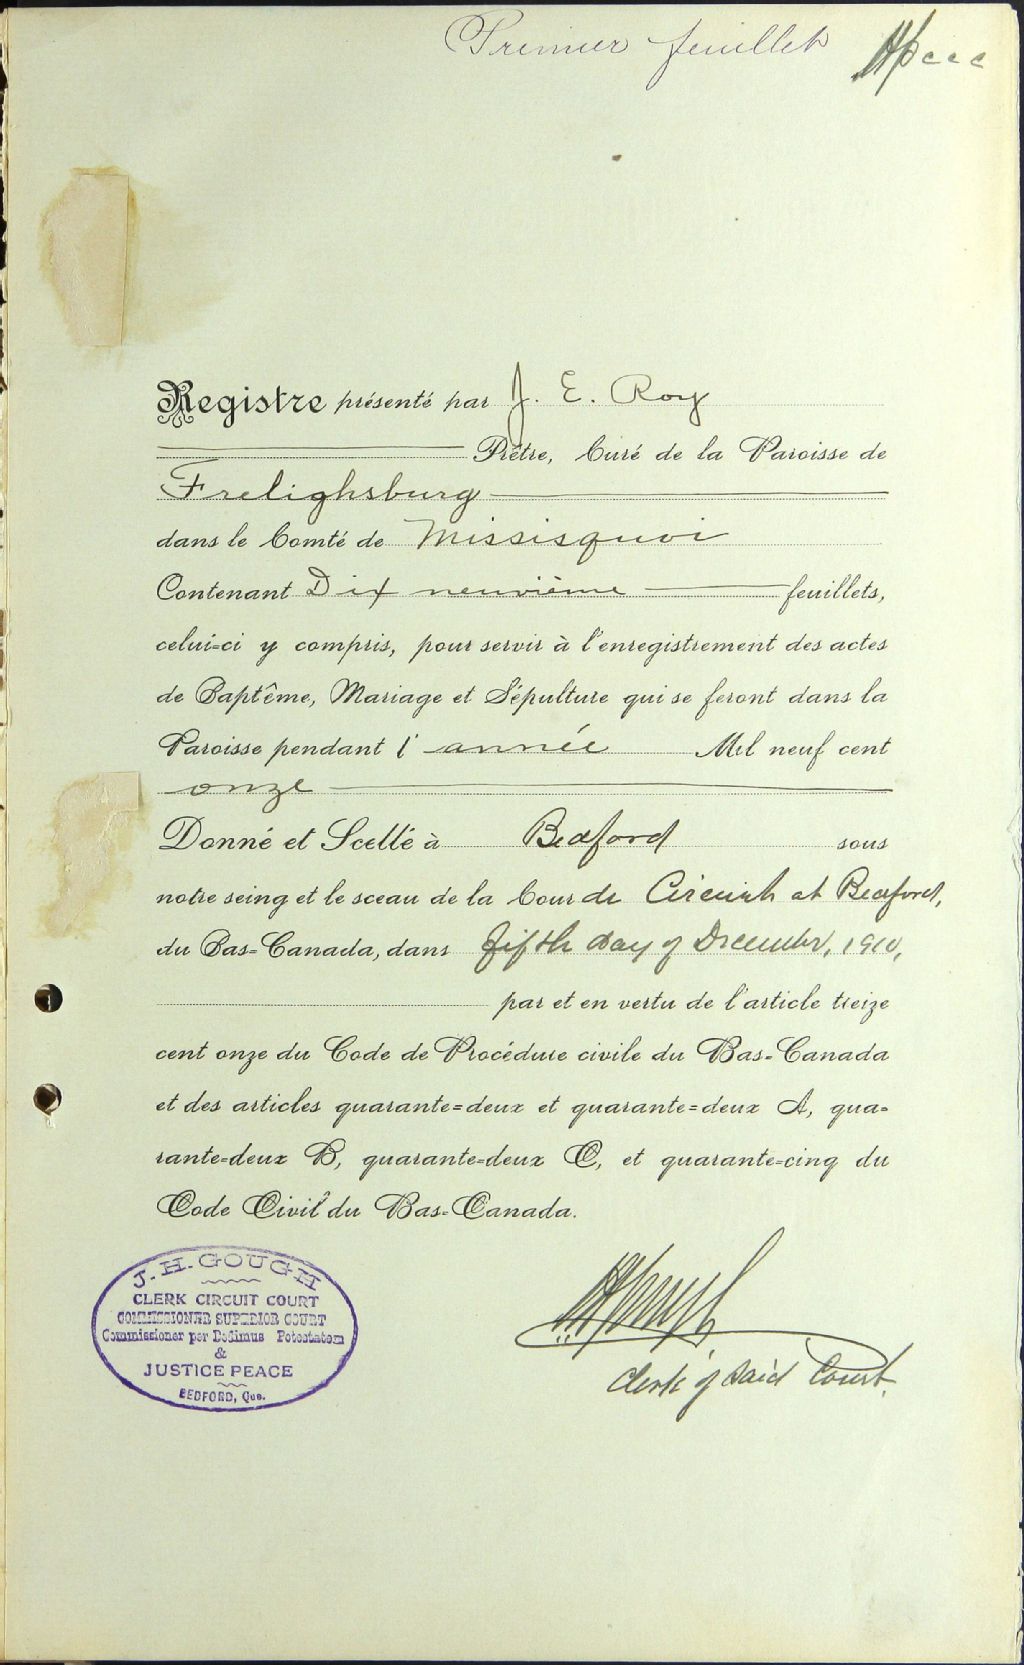 Premier feuillet
Registre présenté par J. E. Roy
Prêtre, Curé de la Paroisse de
Frelighsburg
dans le Comté de Missisquoi
Contenant Dix neuvième feuillets,
celui=ci y compris, pour servir à l'enregistrement des actes
de Baptême, Mariage et Sépulture qui se feront dans la
Paroisse pendant l'année Mil neuf cent
onze
Donné et Scellé à Bedford sous
notre seing et le sceau de la Cour de Circuit at Bedford,
du Bas=Canada, dans fifth day of December, 1910,
par et en vertu de l'article treize
cent onze du Code de Procédure civile du Bas=Canada
et des articles quarante=deux et quarante=deux A, qua=
rante=deux B, quarante=deux C, et quarante=cinq du
Code Civil du Bas=Canada.
J. H. GOUGH
CLERK CIRCUIT COURT
COMMISSIONER SUPERIOR COURT
Commissioner per Dedimus Potestatem
&
JUSTICE PEACE
BEDFORD, Que.
Clerk of said Court.